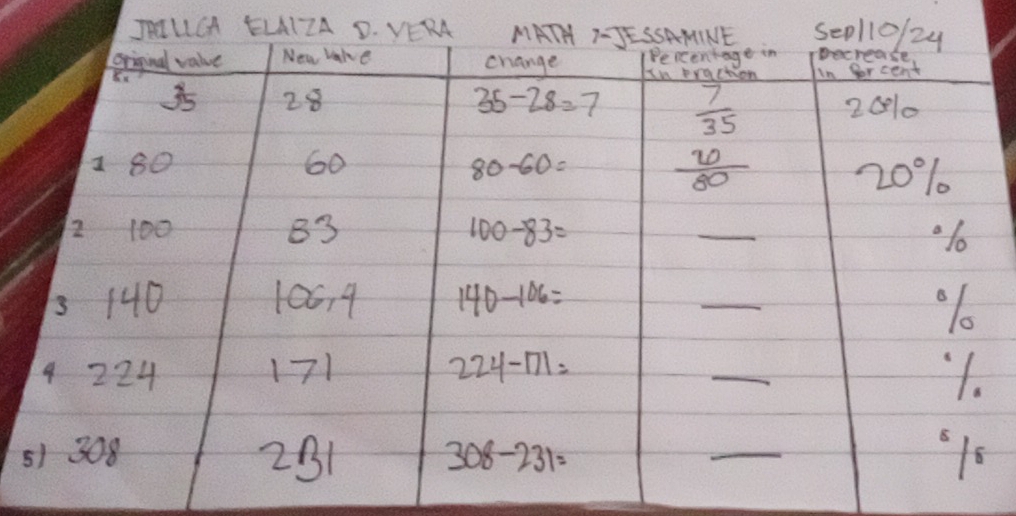 JAILLGA ELAIZA D. VERA MATH 7-JESSAMINE Sep/10/24
Original value New Value change Percentage in Decrease
Ex. In Fraction in Percent
35 28 35-28=7 7/35 20%
1 80 60 80-60= 20/80 20%
2 100 83 100-83= — %
3 140 106,4 140-106= — %
4 224 171 224-171= — %
5) 308 231 308-231= — %